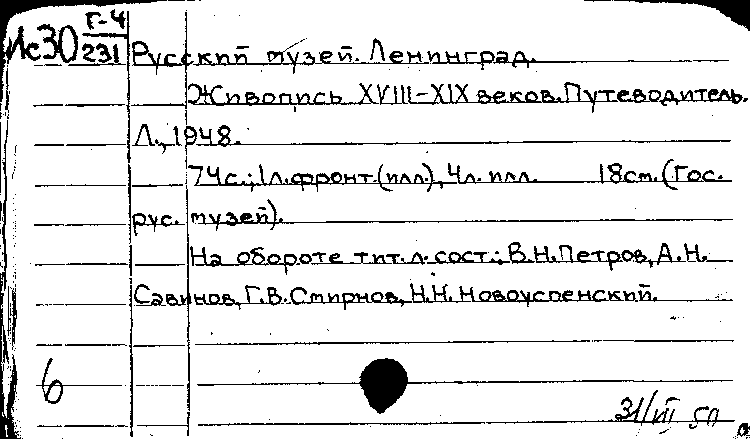 Ис30 Г-4/231
Русский музей. Ленинград.
Живопись XVIII-XIX веков. Путеводитель.
Л., 1948.
74с.; 1л. фронт. (илл.), 4л. илл. 18см. (Гос.
рус. музей).
На обороте тит. л. сост.: В.Н. Петров, А.Н.
Савинов, Г.В. Смирнов, Н.Н. Новоуспенский.
6
31/VII 50